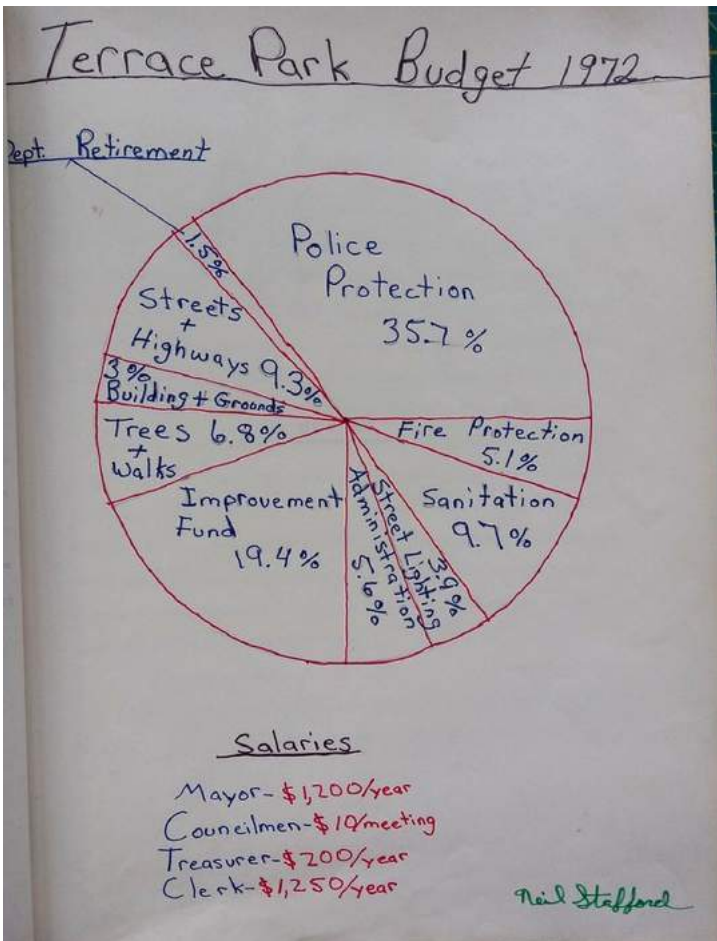 Terrace Park Budget 1972
Dept. Retirement
1.5%
Police
Protection
35.7%
Streets
+
Highways 9.3%
3%
Building + Grounds
Trees 6.8%
+
Walks
Fire Protection
5.1%
Sanitation
9.7%
Street Lighting
3.9%
Administration
5.6%
Improvement
Fund
19.4%
Salaries
Mayor-$1,200/year
Councilmen-$10/meeting
Treasurer-$200/year
Clerk-$1,250/year
Neil Stafford